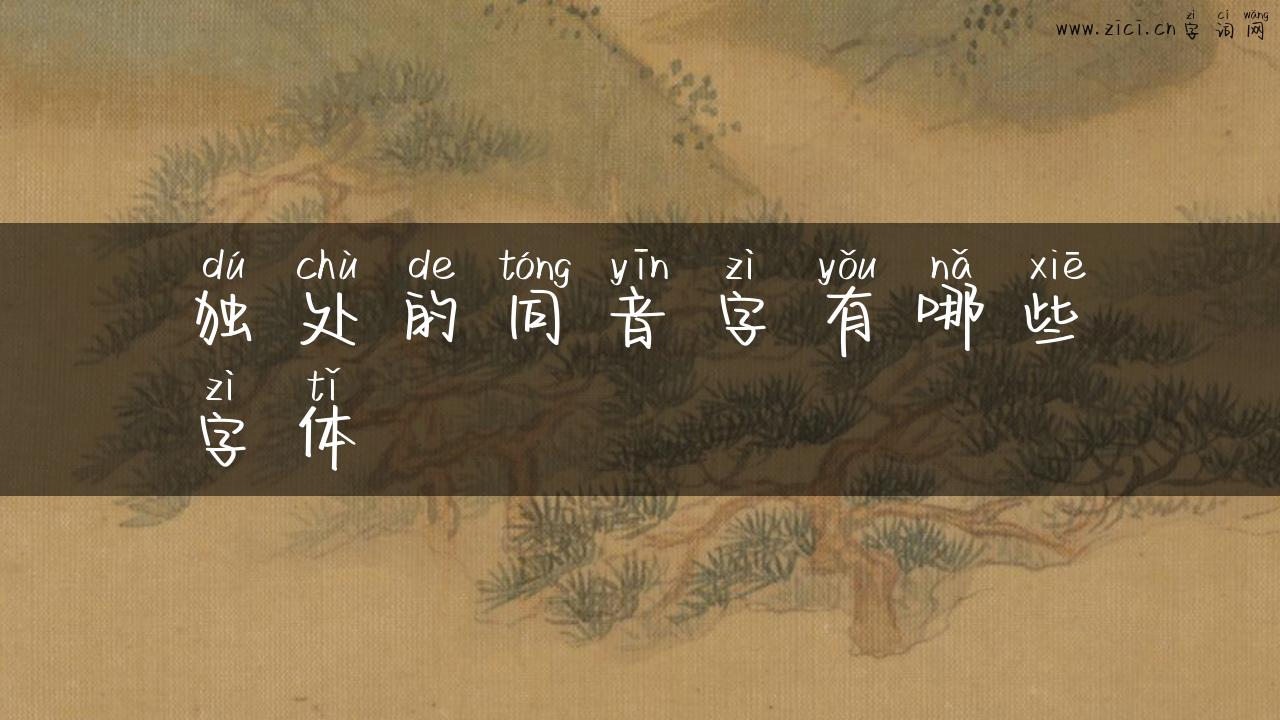 zì cí wǎng
www.zici.cn 字 词 网
dú chù de tóng yīn zì yǒu nǎ xiē
独 处 的 同 音 字 有 哪 些
zì tǐ
字 体